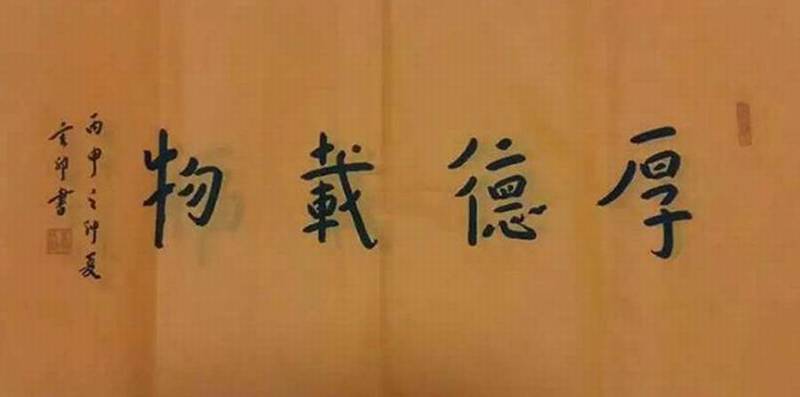 厚德載物
丙申之仲夏
玄卯書